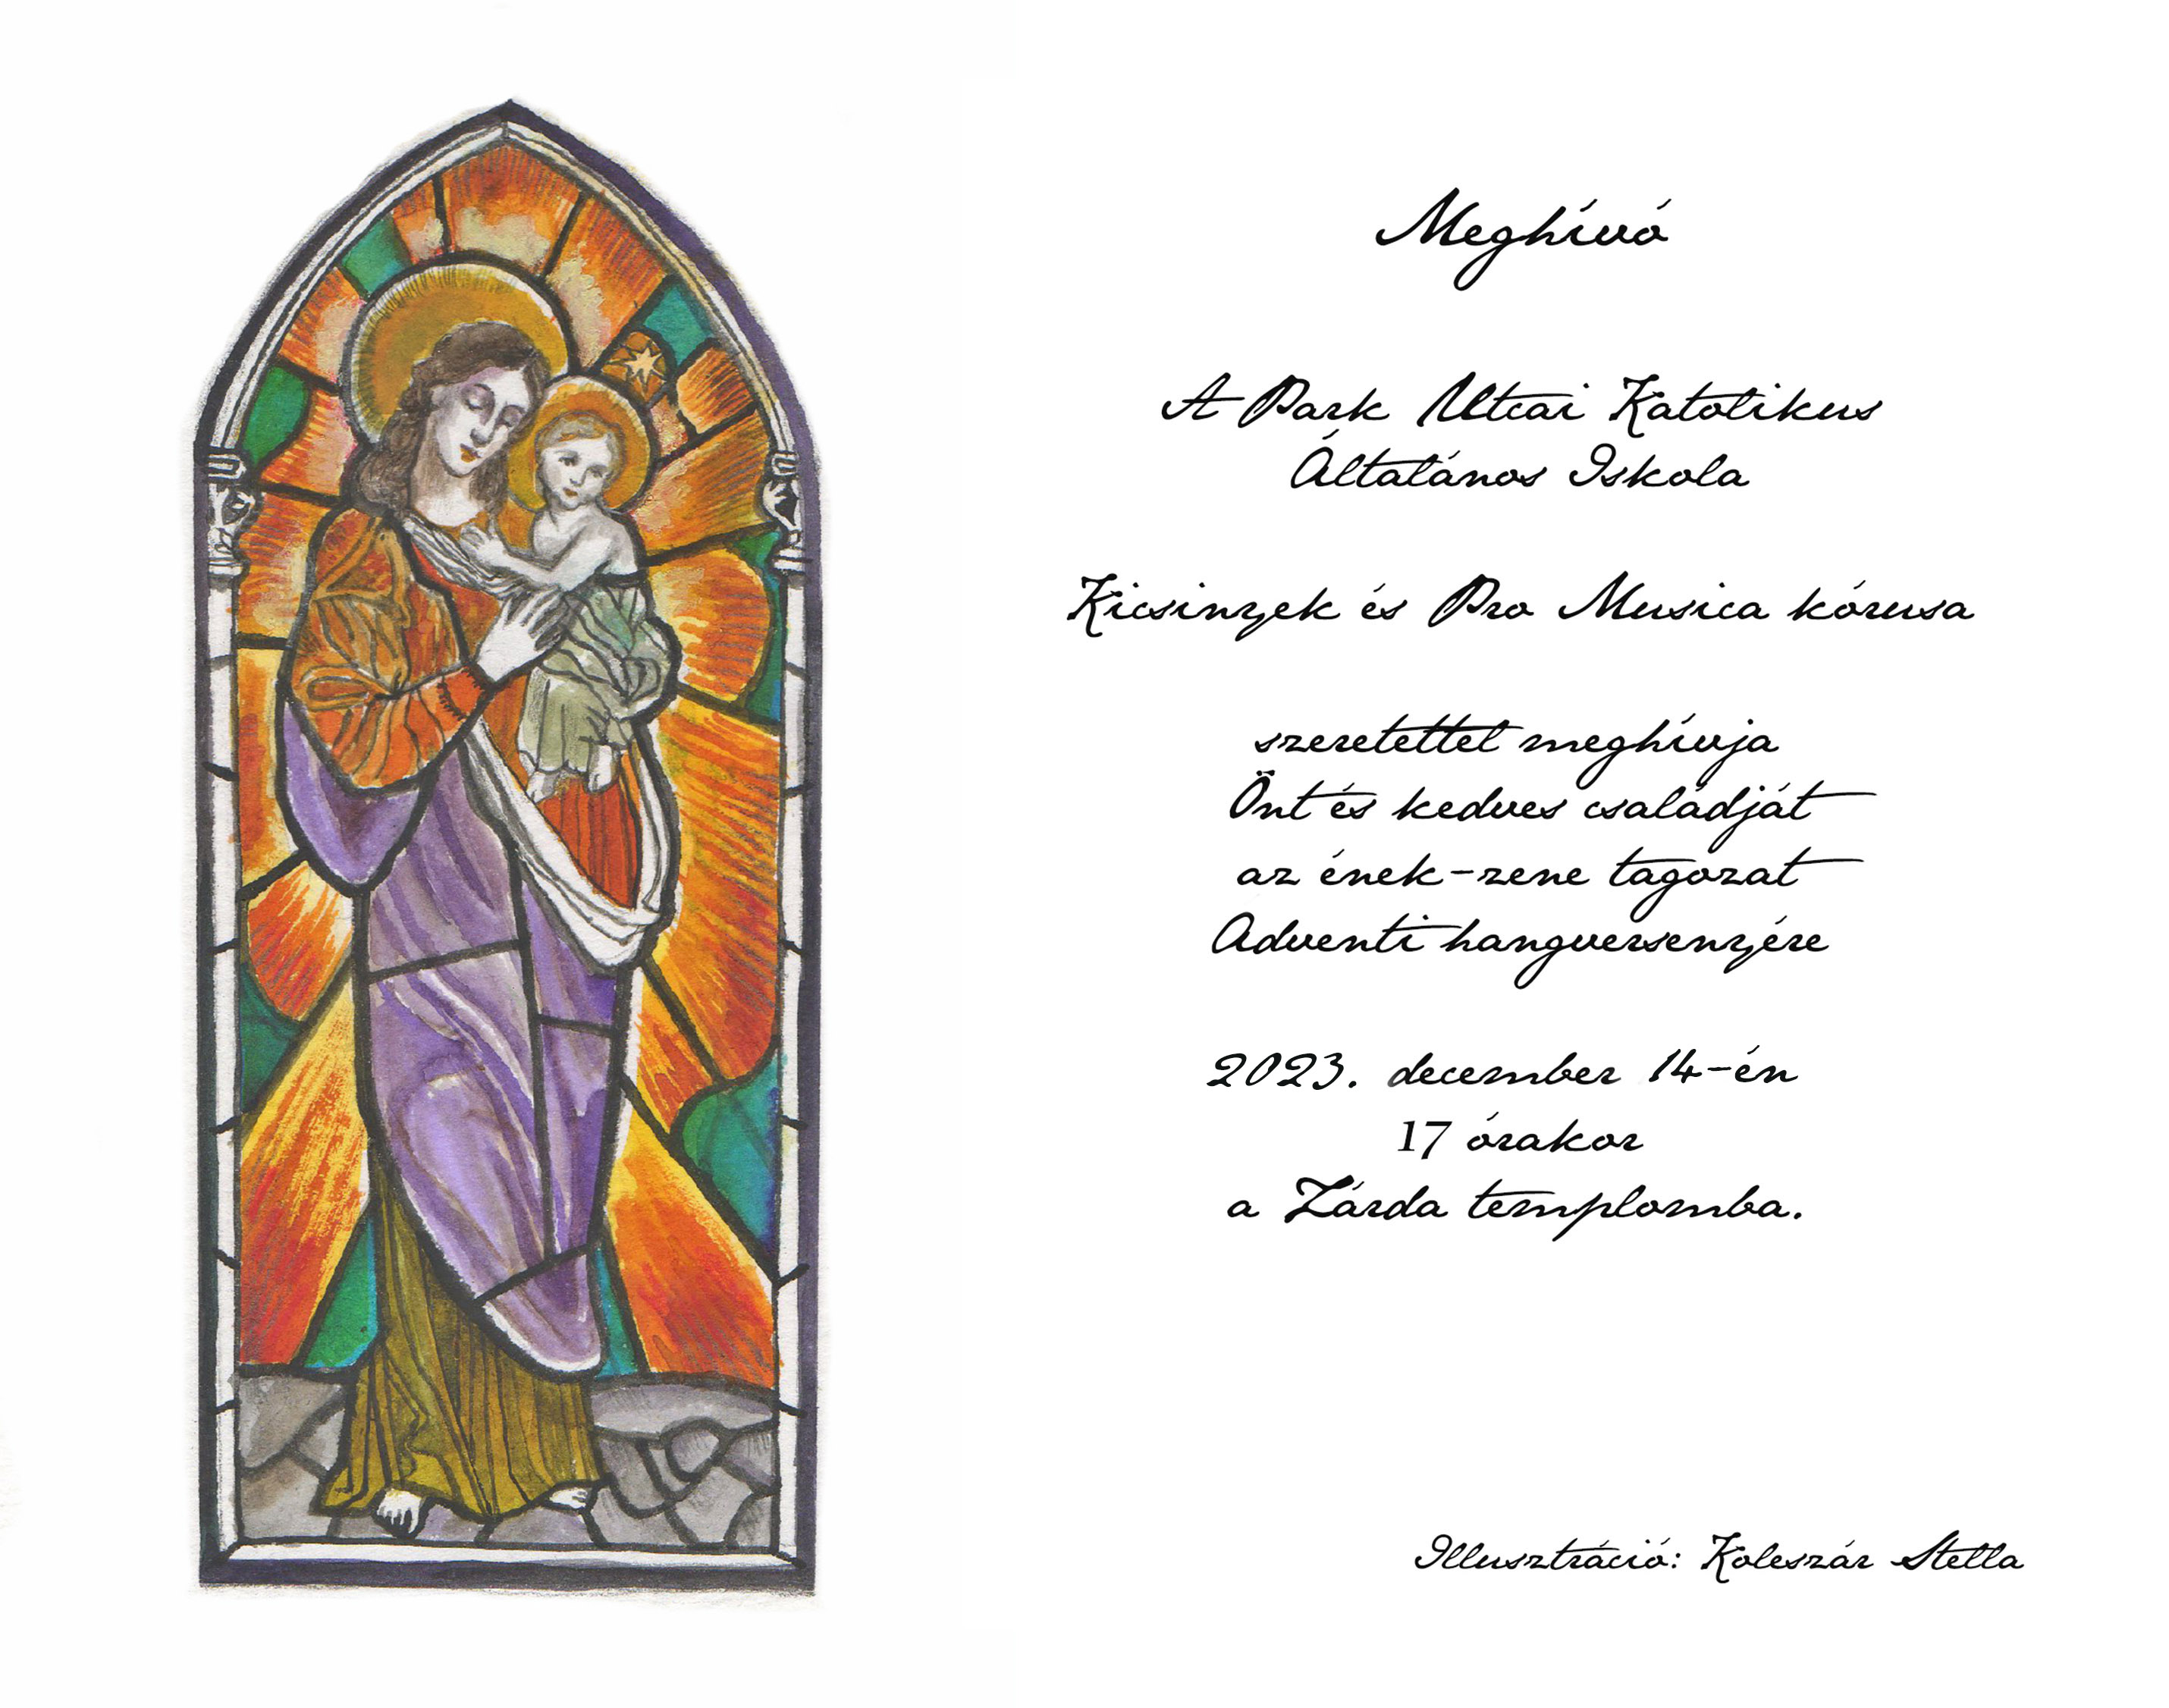 Meghívó
A Park Utcai Katolikus
Általános Iskola
Kicsinyek és Pro Musica kórusa
szeretettel meghívja
Önt és kedves családját
az ének-zene tagozat
Adventi hangversenyére
2023. december 14-én
17 órakor
a Zárda templomba.
Illusztráció: Koleszár Stella